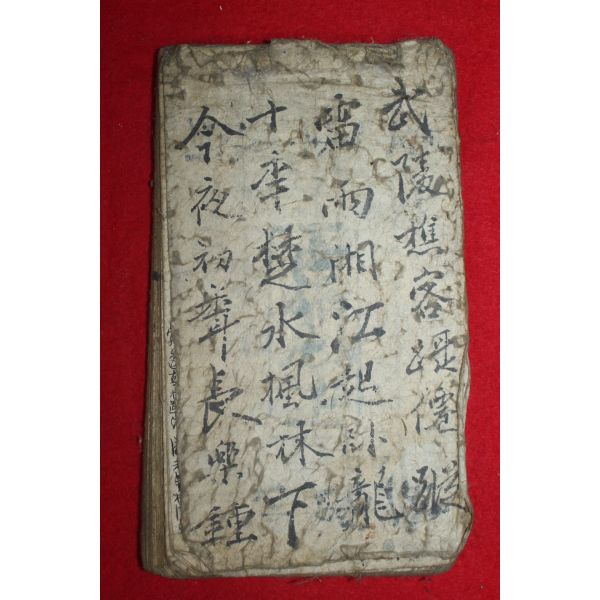 武陵樵客躡僊蹤
雷雨湘江起卧龍
十年楚水楓林下
今夜初聞長樂鍾